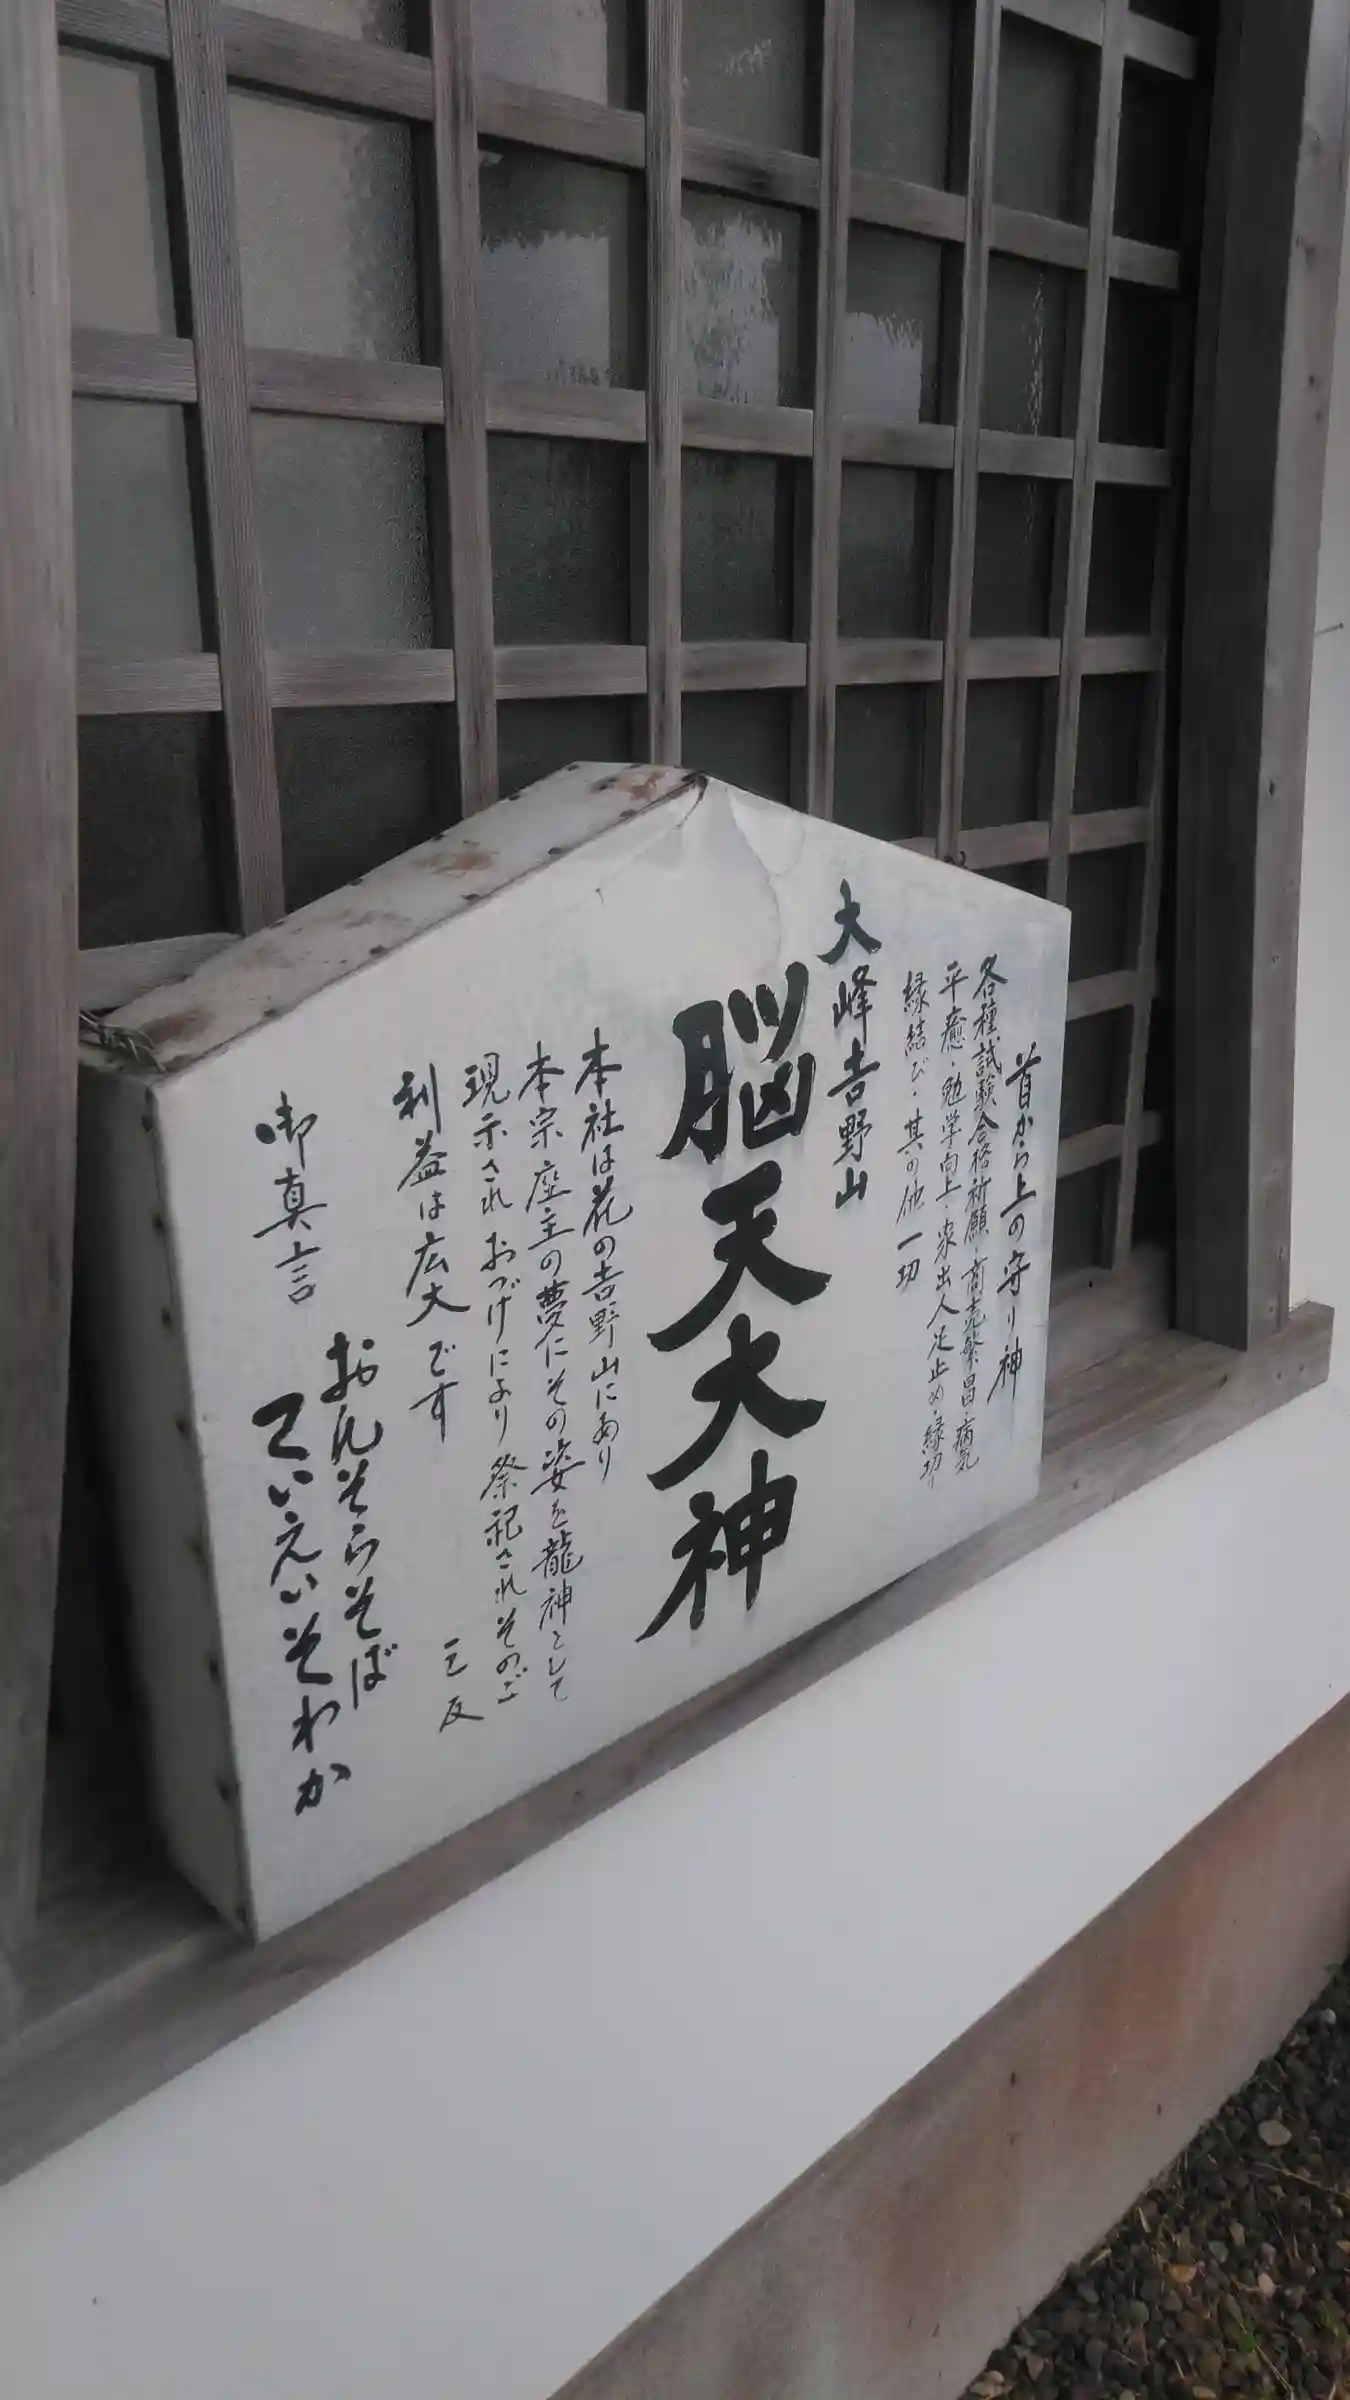 首から上の守り神
各種試験合格祈願・商売繁昌・病気
平癒・勉学向上・家出人足止め・縁切り
縁結び・其の他一切
大峰吉野山
脳天大神
本社は花の吉野山にあり
本宗座主の夢にその姿を龍神として
現示されおつげにより祭祀されそのご
利益は広大です
御真言
三反
おんそらそば
てい えい そわか